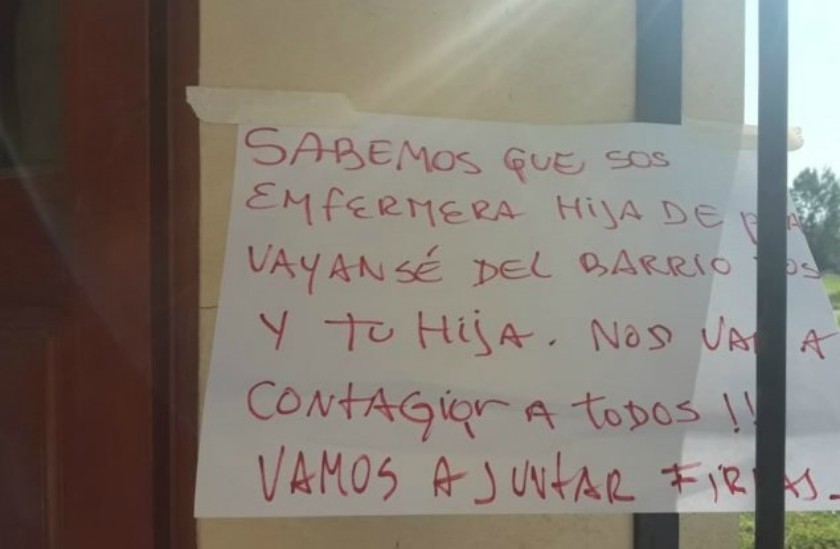 SABEMOS QUE SOS
EMFERMERA HIJA DE
VAYANSÉ DEL BARRIO
Y TU HIJA. NOS VAN A
CONTAGIAR A TODOS !!
VAMOS A JUNTAR FIRMAS.